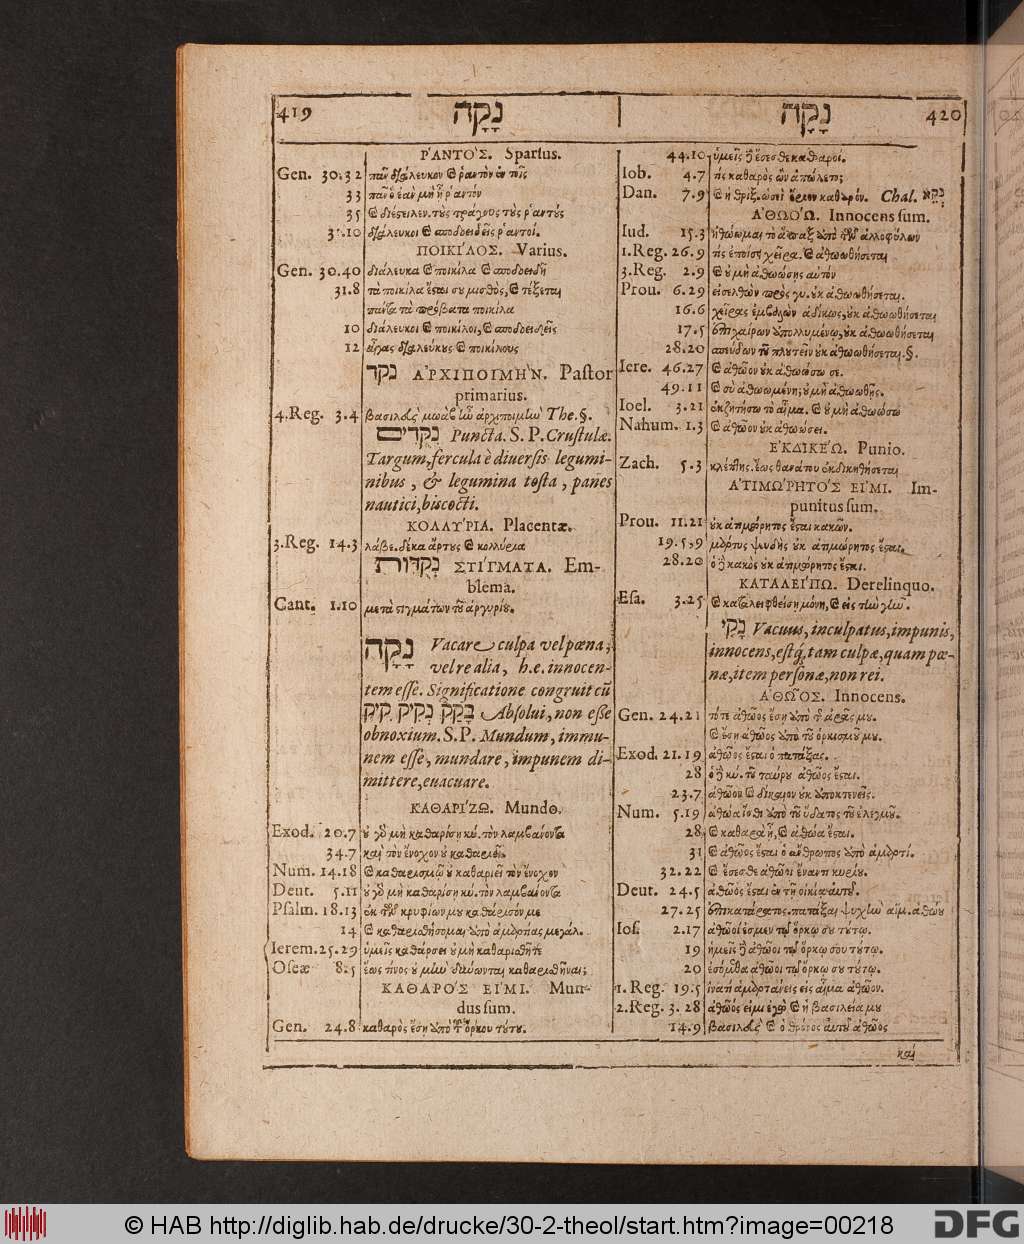 419 נָקָה
נָקָה 420
ΡΑΝΤΟΣ. Sparſus.
Gen. 30.32 πᾶν διάλευκον καὶ ῥαντὸν ἐν τοῖς
33 πᾶν ὃ ἐὰν μὴ ᾖ ῥαντόν
35 καὶ διέςειλεν. τοὺς τράγους τοὺς ῥαντοὺς
διάλευκοι καὶ σποδοειδεῖς ῥαντοί.
ΠΟΙΚΙΛΟΣ. Varius.
Gen. 30.40 διάλευκα καὶ ποικίλα καὶ σποδοειδῆ
31.8 τὰ ποικίλα ἔςαι σου μισθὸς, καὶ τέξεται
πάντα τὰ πρόβατα ποικίλα
10 διάλευκοι καὶ ποικίλοι, καὶ σποδοειδεῖς
12 διαλεύκους καὶ ποικίλους
נקד ἈΡΧΙΠΟΙΜΗΝ. Paſtor
primarius.
4.Reg. 3.4 βασιλεὺς μωὰβ ἦν ἀρχιποιμὴν The. §.
נִקֻּדִים Puncta. S. P. Cruſtulæ.
Targum, fercula è diuerſis legumi-
nibus, & legumina toſta, panes
nautici, biscocti.
ΚΟΛΛΥΡΙΑ. Placentæ.
3.Reg. 14.3 λάβε. δέκα ἄρτους καὶ κολλύρια
נְקֻדּוֹת ΣΤΙΓΜΑΤΑ. Em-
blema.
Cant. 1.10 μετὰ ςιγμάτων τοῦ ἀργυρίου.
נָקָה Vacare culpa vel pœna;
vel re alia, h.e. innocen-
tem eſſe. Significatione congruit cũ
בָּקַק נָקִיק קִיק Abſolui, non eſſe
obnoxium. S.P. Mundum, immu-
nem eſſe, mundare, impunem di-
mittere, euacuare.
ΚΑΘΑΡΙΖΩ. Mundo.
Exod. 20.7 οὐ γὰρ μὴ καθαρίσῃ κύ. τὸν λαμβάνοντα
34.7 καὶ τὸν ἔνοχον οὐ καθαριεῖ.
Num. 14.18 καὶ καθαρισμῷ οὐ καθαριεῖ τὸν ἔνοχον
Deut. 5.11 οὐ γὰρ μὴ καθαρίσῃ κύ. τὸν λαμβάνοντα
Pſalm. 18.13 ἐκ τῶν κρυφίων μου καθάρισόν με
14 καὶ καθαρισθήσομαι ἀπὸ ἁμαρτίας μεγάλ.
Ierem. 25.29 ὑμεῖς καθάρσει οὐ μὴ καθαρισθῆτε
Oſeæ 8.5 ἕως τίνος οὐ μὴ δύνωνται καθαρισθῆναι;
ΚΑΘΑΡΟΣ ΕΙΜΙ. Mun-
dus ſum.
Gen. 24.8 καθαρὸς ἔσῃ ἀπὸ τοῦ ὅρκου τούτου.
44.10 ὑμεῖς δὲ ἔσεσθε καθαροί.
Iob. 4.7 τίς καθαρὸς ὢν ἀπώλετο;
Dan. 7.9 καὶ ἡ θρίξ. ὡσεὶ ἔριον καθαρόν. Chal. נְקֵא
ἈΘΩΟΩ. Innocens ſum.
Iud. 15.3 ἠθώωμαι τὸ ἅπαξ ἀπὸ τῶν ἀλλοφύλων
1.Reg. 26.9 τίς ἐποίσει χεῖρα. καὶ ἀθωωθήσεται
3.Reg. 2.9 καὶ οὐ μὴ ἀθωώσῃς αὐτόν
Prou. 6.29 εἰσελθὼν πρὸς γυ. οὐκ ἀθωωθήσεται.
16.6 χεῖρας ἐμβαλὼν ἀδίκως, οὐκ ἀθωωθήσεται
17.5 ἐπιχαίρων ἀπολλυμένῳ, οὐκ ἀθωωθήσεται
28.20 σπεύδων τοῦ πλουτεῖν οὐκ ἀθωωθήσεται. §.
Iere. 46.27 καὶ ἀθῶον οὐκ ἀθωώσω σε.
49.11 καὶ σὺ ἀθωωμένη; οὐ μὴ ἀθωωθῇς.
Ioel. 3.21 ἐκζητήσω τὸ αἷμα. καὶ οὐ μὴ ἀθωώσω
Nahum. 1.3 καὶ ἀθῶον οὐκ ἀθωώσει.
ἘΚΔΙΚΕΩ. Punio.
Zach. 5.3 κλέπτης. ἕως θανάτου ἐκδικηθήσεται
ἈΤΙΜΩΡΗΤΟΣ ΕΙΜΙ. Im-
punitus ſum.
Prou. 11.21 οὐκ ἀτιμώρητος ἔςαι κακῶν.
19.5,9 μάρτυς ψευδὴς οὐκ ἀτιμώρητος ἔςαι.
28.20 ὁ δὲ κακὸς οὐκ ἀτιμώρητος ἔςαι.
ΚΑΤΑΛΕΙΠΩ. Derelinquo.
Eſa. 3.25 καὶ καταλειφθείσῃ μόνη, καὶ εἰς τὴν γῆν.
נָקִי Vacuus, inculpatus, impunis,
innocens, eſtq́, tam culpæ, quam pœ-
næ, item perſonæ, non rei.
ἈΘΩΟΣ. Innocens.
Gen. 24.21 τότε ἀθῶος ἔσῃ ἀπὸ τῆς ἀρᾶς μου.
καὶ ἔσῃ ἀθῶος ἀπὸ τοῦ ὁρκισμοῦ μου.
Exod. 21.19 ἀθῶος ἔςαι ὁ πατάξας.
28 ὁ δὲ κύ. τοῦ ταύρου ἀθῶος ἔςαι.
23.7 ἀθῶον καὶ δίκαιον οὐκ ἀποκτενεῖς.
Num. 5.19 ἀθώα ἴσθι ἀπὸ τοῦ ὕδατος τοῦ ἐλεγμοῦ.
28 καὶ καθαρὰ ᾖ, καὶ ἀθώα ἔςαι.
31 καὶ ἀθῶος ἔςαι ὁ ἄνθρωπος ἀπὸ ἁμαρτί.
32.22 καὶ ἔσεσθε ἀθῶοι ἔναντι κυρίου.
Deut. 24.5 ἀθῶος ἔςαι ἐν τῇ οἰκίᾳ αὐτοῦ.
27.25 ἐπικατάρατος. πατάξαι ψυχὴν αἵμ. ἀθώου
Ioſ. 2.17 ἀθῶοί ἐσμεν τῷ ὅρκῳ σου τούτῳ.
19 ἡμεῖς δὲ ἀθῶοι τῷ ὅρκῳ σου τούτῳ.
20 ἐσόμεθα ἀθῶοι τῷ ὅρκῳ σου τούτῳ.
1.Reg. 19.5 ἱνατί ἁμαρτάνεις εἰς αἷμα ἀθῶον.
2.Reg. 3.28 ἀθῶός εἰμι ἐγὼ καὶ ἡ βασιλεία μου
14.9 βασιλεὺς καὶ ὁ θρόνος αὐτοῦ ἀθῶος
καὶ
© HAB http://diglib.hab.de/drucke/30-2-theol/start.htm?image=00218
DFG